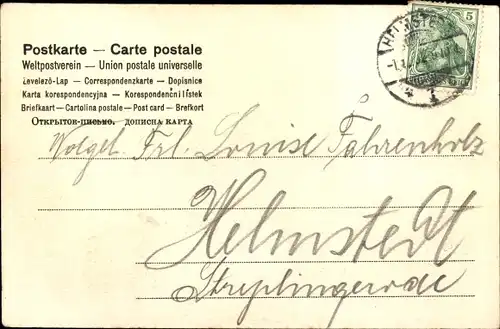 Postkarte — Carte postale
Weltpostverein — Union postale universelle
Levelező-Lap — Correspondenzkarte — Dopisnice
Karta korespondencyjna — Korespondenčni listek
Briefkaart — Cartolina postale — Post card — Brefkort
Открытое письмо. дописна карта
5
Wolgeb. Frl. Louise Fahrenholz
Helmstedt